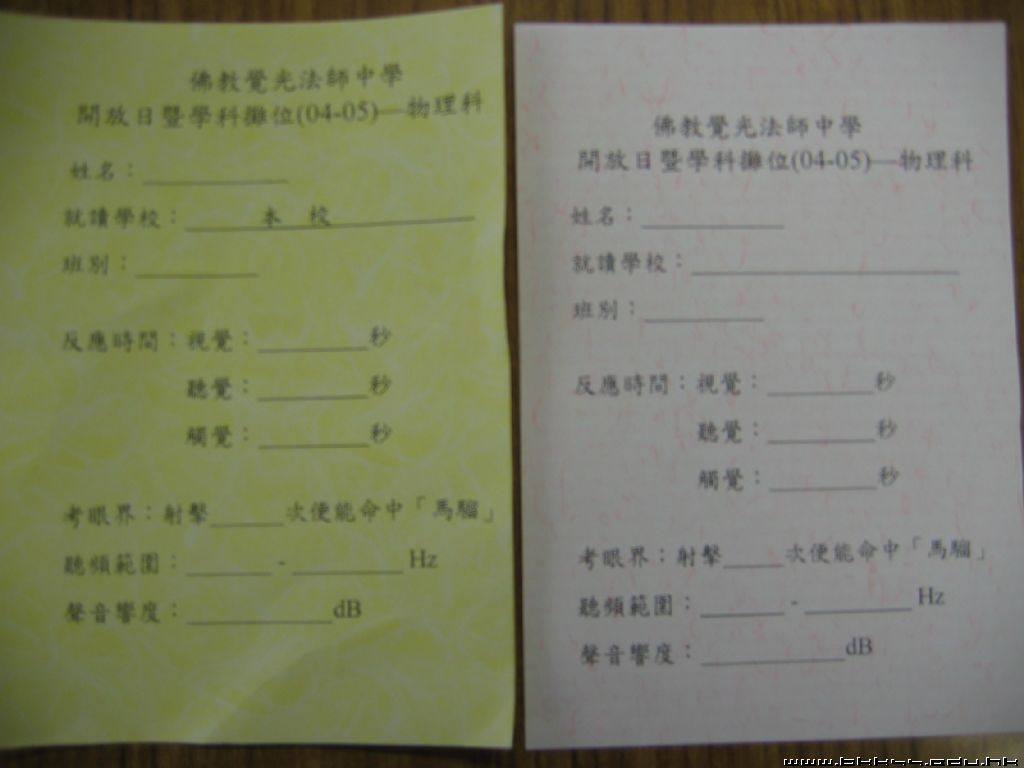 佛教覺光法師中學
開放日暨學科攤位(04-05)—物理科
姓名：__________
就讀學校：______本 校__________
班別：________
反應時間：視覺：________秒
聽覺：________秒
觸覺：________秒
考眼界：射擊_____次便能命中「馬騮」
聽頻範圍：______-________Hz
聲音響度：__________dB
佛教覺光法師中學
開放日暨學科攤位(04-05)—物理科
姓名：__________
就讀學校：__________________
班別：________
反應時間：視覺：________秒
聽覺：________秒
觸覺：________秒
考眼界：射擊____次便能命中「馬騮」
聽頻範圍：______-________Hz
聲音響度：__________dB